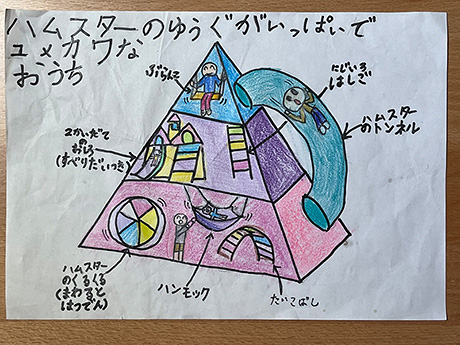 ハムスターのゆうぐがいっぱいで
ユメカワな
おうち
ぶらんこ
にじいろ
はしご
ハムスター
のトンネル
2かいだて
の
おしろ
(すべりだいつき)
ハムスター
のくるくる
(まわすと
はつでん)
ハンモック
たいこばし